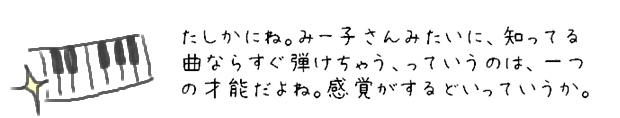 たしかにね。みー子さんみたいに、知ってる
曲ならすぐ弾けちゃう、っていうのは、一つ
の才能だよね。感覚がするどいっていうか。